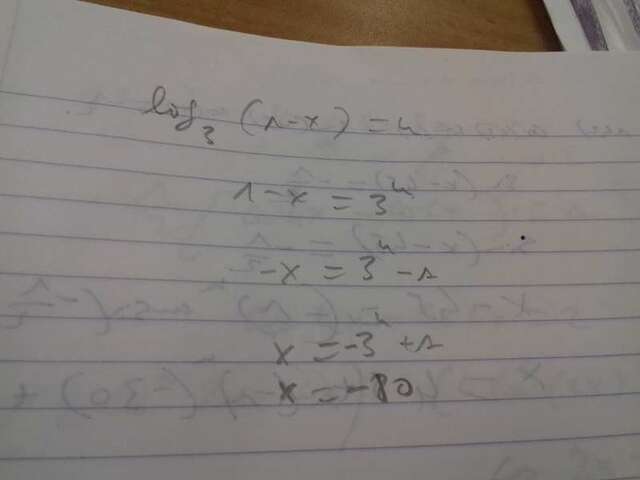 log₃ (1-x) = 4
1-x = 3⁴
-x = 3⁴-1
x = -3⁴+1
x = -80